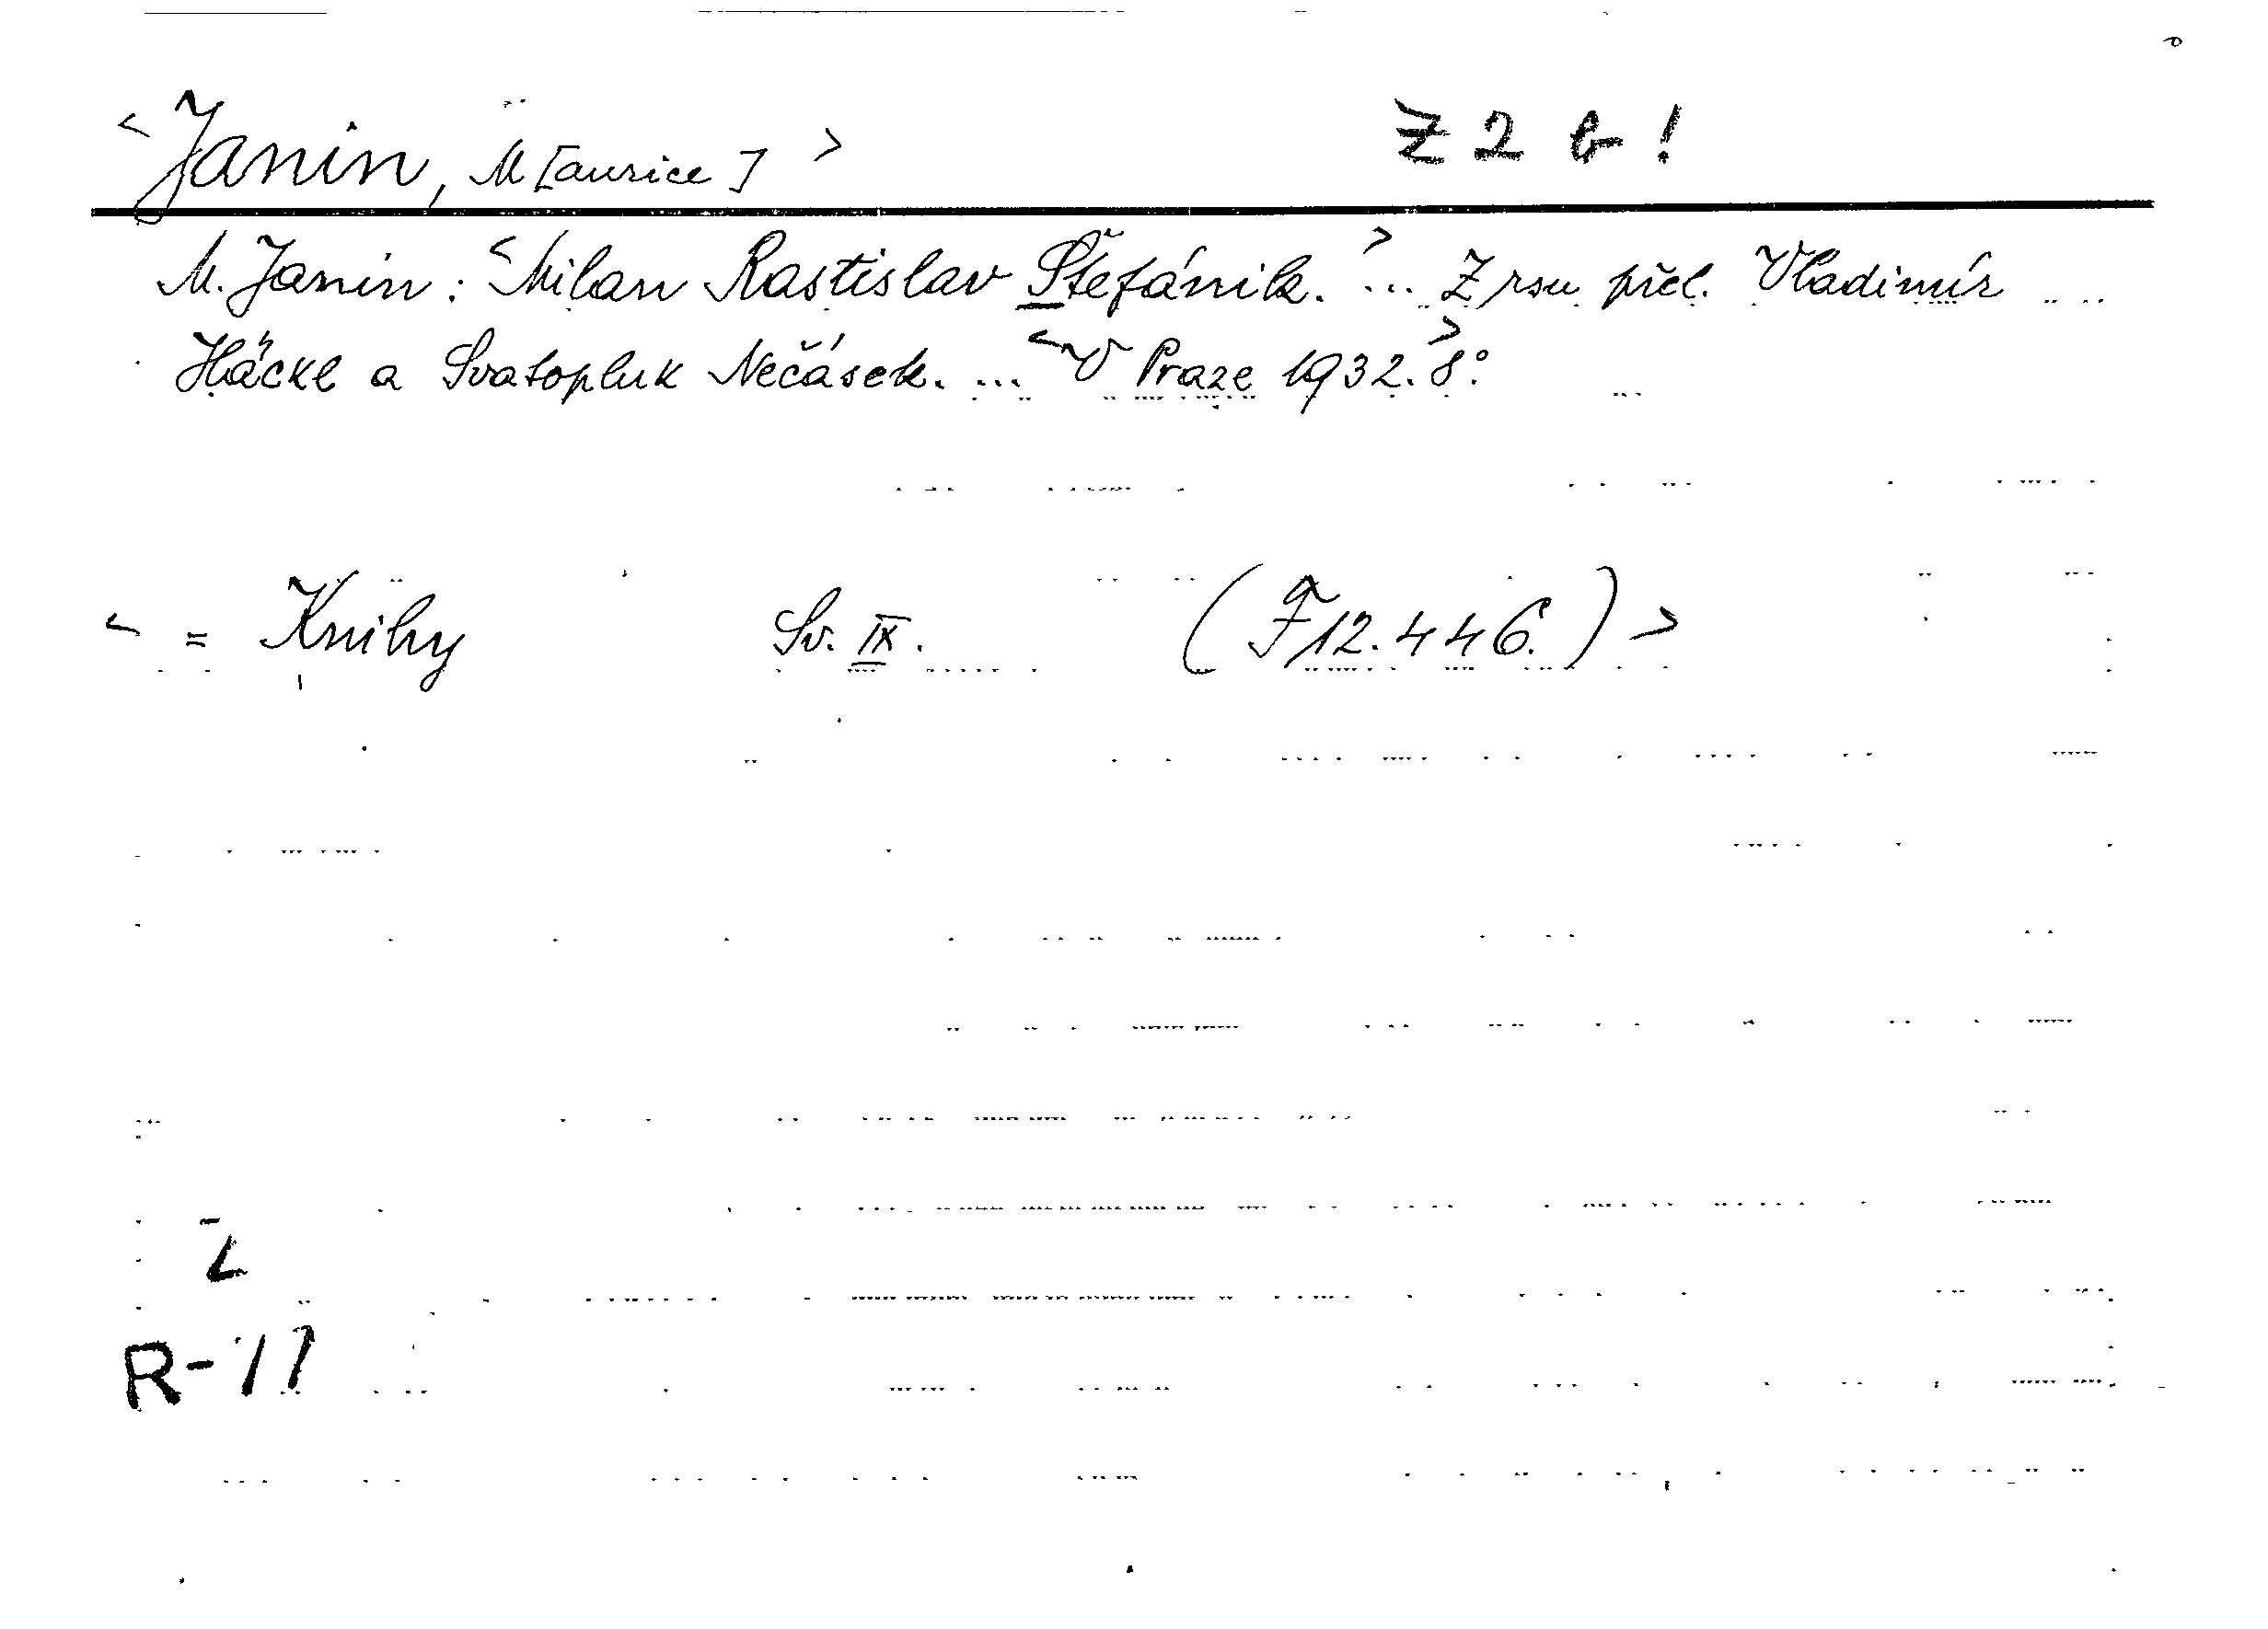 <Janin, M[aurice]> Z 2 b!
M. Janin: <Milan Rastislav Štefánik.> ... Z rsu přel. Vladimír
Häckl a Svatopluk Nečásek. ... <V Praze 1932.> 8°
< = Knihy Sv. IX. (F 12.446.) >
Z
R-11